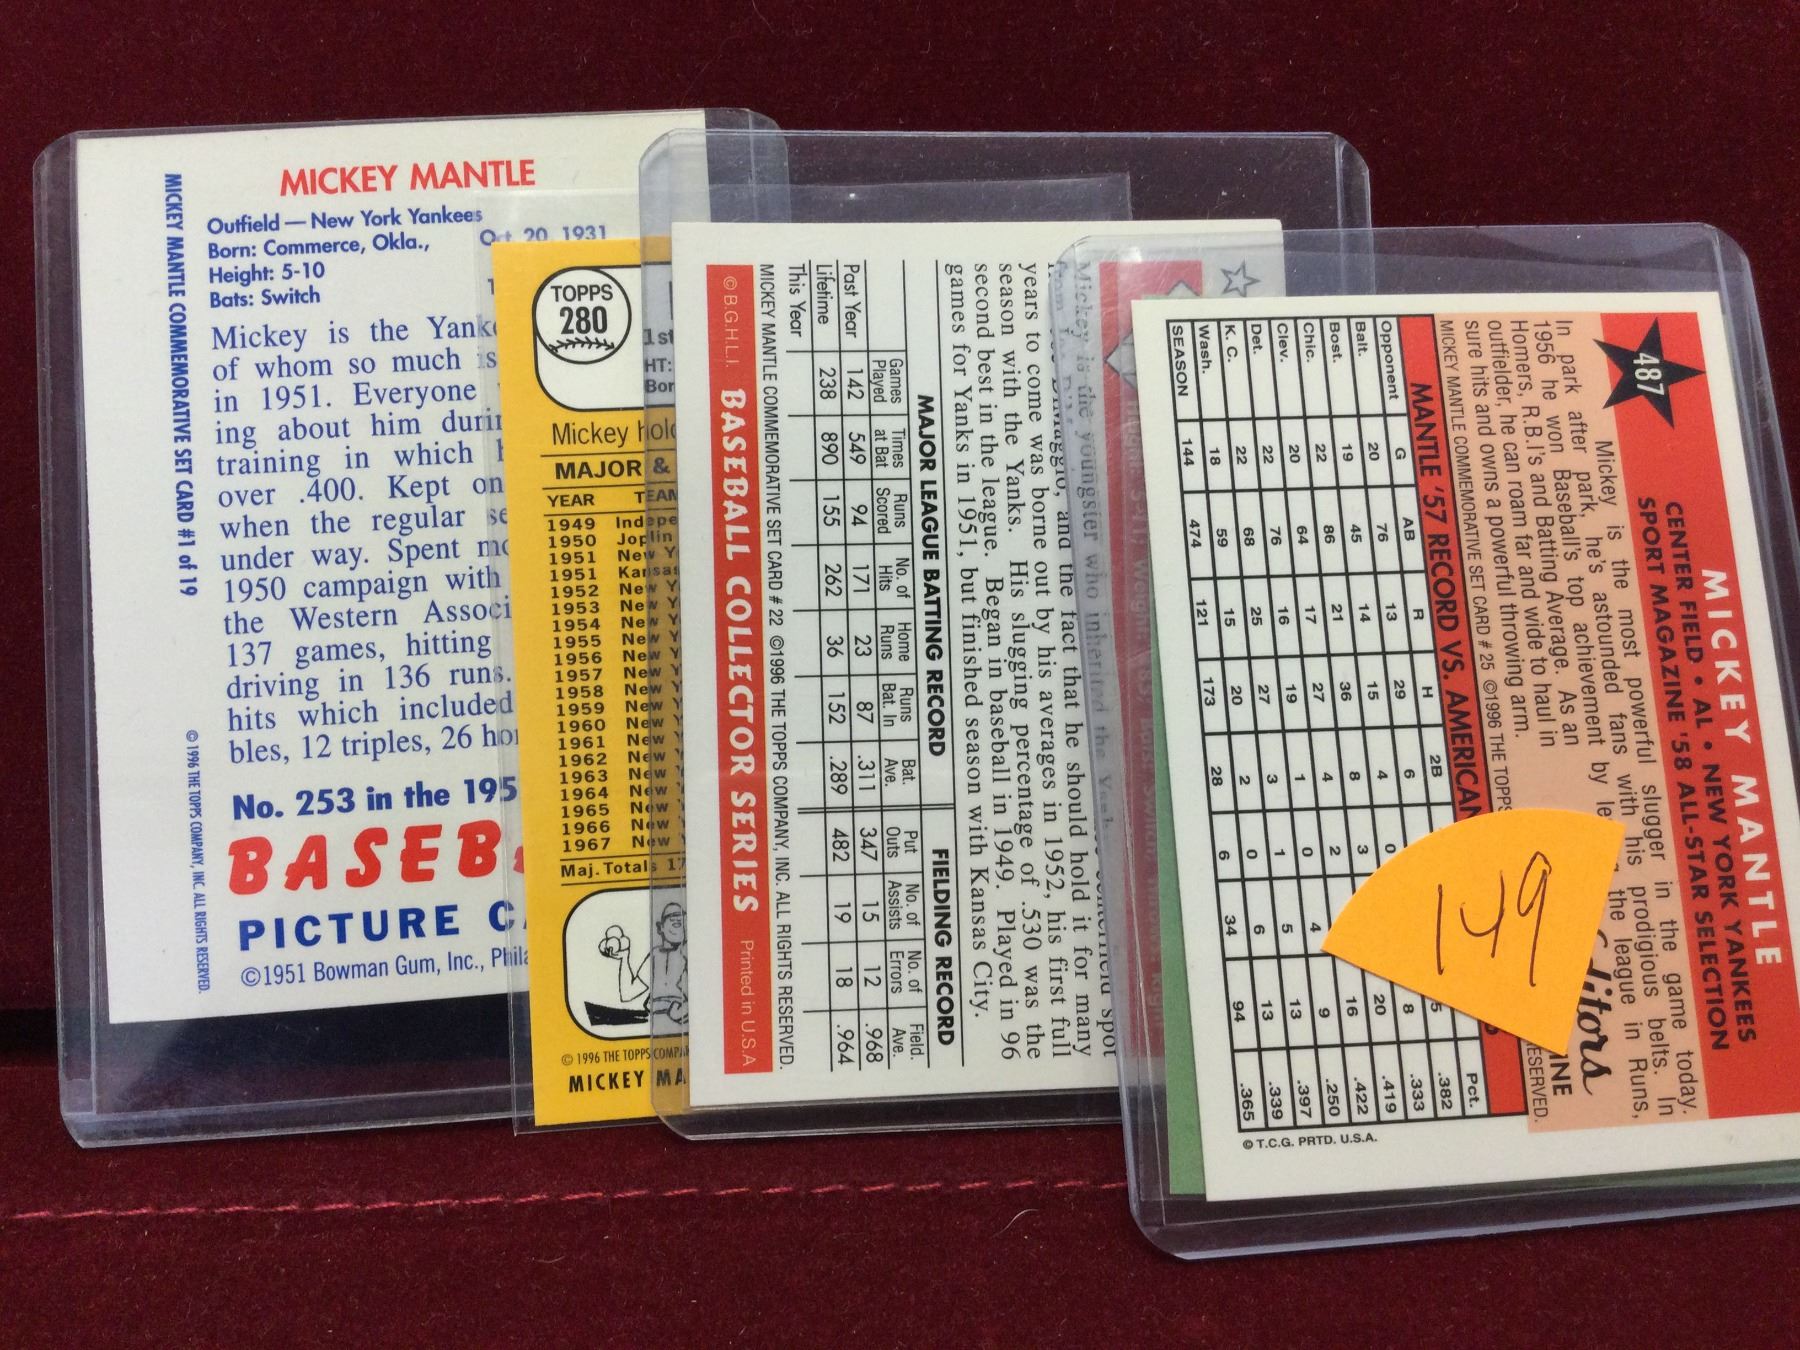 MICKEY MANTLE
Outfield — New York Yankees
Born: Commerce, Okla., Oct. 20, 1931
Height: 5-10
Bats: Switch
Mickey is the Yank
of whom so much is
in 1951. Everyone
ing about him durin
training in which
over .400. Kept on
when the regular se
under way. Spent mo
1950 campaign with
the Western Associ
137 games, hitting
driving in 136 runs.
hits which included
bles, 12 triples, 26 ho
No. 253 in the 195
BASEB
PICTURE CA
©1951 Bowman Gum, Inc., Phila
MICKEY MANTLE COMMEMORATIVE SET CARD #1 of 19
© 1996 THE TOPPS COMPANY, INC. ALL RIGHTS RESERVED.
TOPPS
280
1st
HT:
Bor
Mickey hold
MAJOR &
YEAR TEAM
1949 Indepe
1950 Joplin
1951 New Y
1951 Kansas
1952 New Y
1953 New Y
1954 New Y
1955 New Y
1956 New Y
1957 New Y
1958 New Y
1959 New Y
1960 New Y
1961 New Y
1962 New Y
1963 New Y
1964 New Y
1965 New Y
1966 New Y
1967 New Y
Maj. Totals 17
© 1996 THE TOPPS COMPA
MICKEY MA
Mickey is the youngster who inherited the Yank centerfield spot
from Joe DiMaggio, and the fact that he should hold it for many
years to come was borne out by his averages in 1952, his first full
season with the Yanks. His slugging percentage of .530 was the
second best in the league. Began in baseball in 1949. Played in 96
games for Yanks in 1951, but finished season with Kansas City.
MAJOR LEAGUE BATTING RECORD FIELDING RECORD
Games Played Times at Bat Runs Scored No. of Hits Home Runs Runs Bat. In Bat. Ave. Put Outs No. of Assists No. of Errors Field. Ave.
Past Year 142 549 94 171 23 87 .311 347 15 12 .968
Lifetime 238 890 155 262 36 152 .289 482 19 18 .964
This Year
MICKEY MANTLE COMMEMORATIVE SET CARD # 22 ©1996 THE TOPPS COMPANY, INC. ALL RIGHTS RESERVED.
© B.G.H.L.I. BASEBALL COLLECTOR SERIES Printed in U.S.A
487
MICKEY MANTLE
CENTER FIELD • AL • NEW YORK YANKEES
SPORT MAGAZINE '58 ALL-STAR SELECTION
Mickey is the most powerful slugger in the game today.
In park after park, he's astounded fans with his prodigious belts. In
1956 he won Baseball's top achievement by le the league in Runs,
Homers, R.B.I's and Batting Average. As an
outfielder, he can roam far and wide to haul in
sure hits and owns a powerful throwing arm.
ditors
INE
MICKEY MANTLE COMMEMORATIVE SET CARD # 25 ©1996 THE TOPPS ESERVED.
MANTLE '57 RECORD VS. AMERICAN
Opponent G AB R H 2B Pct.
Balt. 20 76 13 29 6 0 5 .382
Bost. 19 45 14 15 4 8 .333
Chic. 22 86 21 36 8 3 20 .419
Clev. 20 64 17 27 4 2 16 .422
Det. 22 76 16 19 1 0 4 9 .250
K. C. 22 68 25 27 3 1 5 13 .397
Wash. 18 59 15 20 2 0 6 13 .339
SEASON 144 474 121 173 28 6 34 94 .365
© T.C.G. PRTD. U.S.A.
149